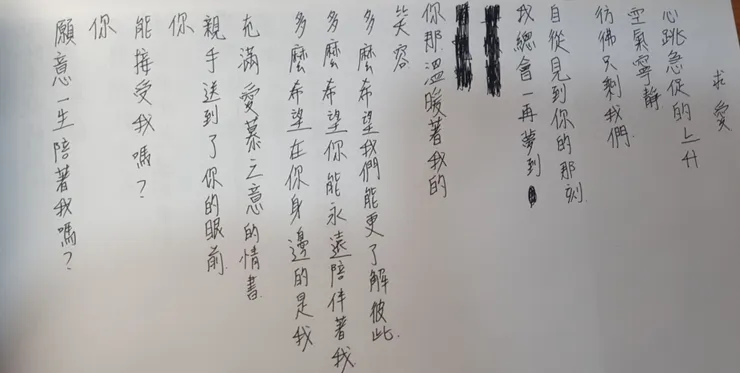 求愛
心跳急促的上升
空氣寧靜
彷彿只剩我們
自從見到你的那刻
我總會一再夢到
你那溫暖著我的
笑容
多麼希望我們能更了解彼此
多麼希望你能永遠陪伴著我
多麼希望在你身邊的是我
充滿愛慕之意的情書
親手送到了你的眼前
你
能接受我嗎？
你
願意一生陪著我嗎？